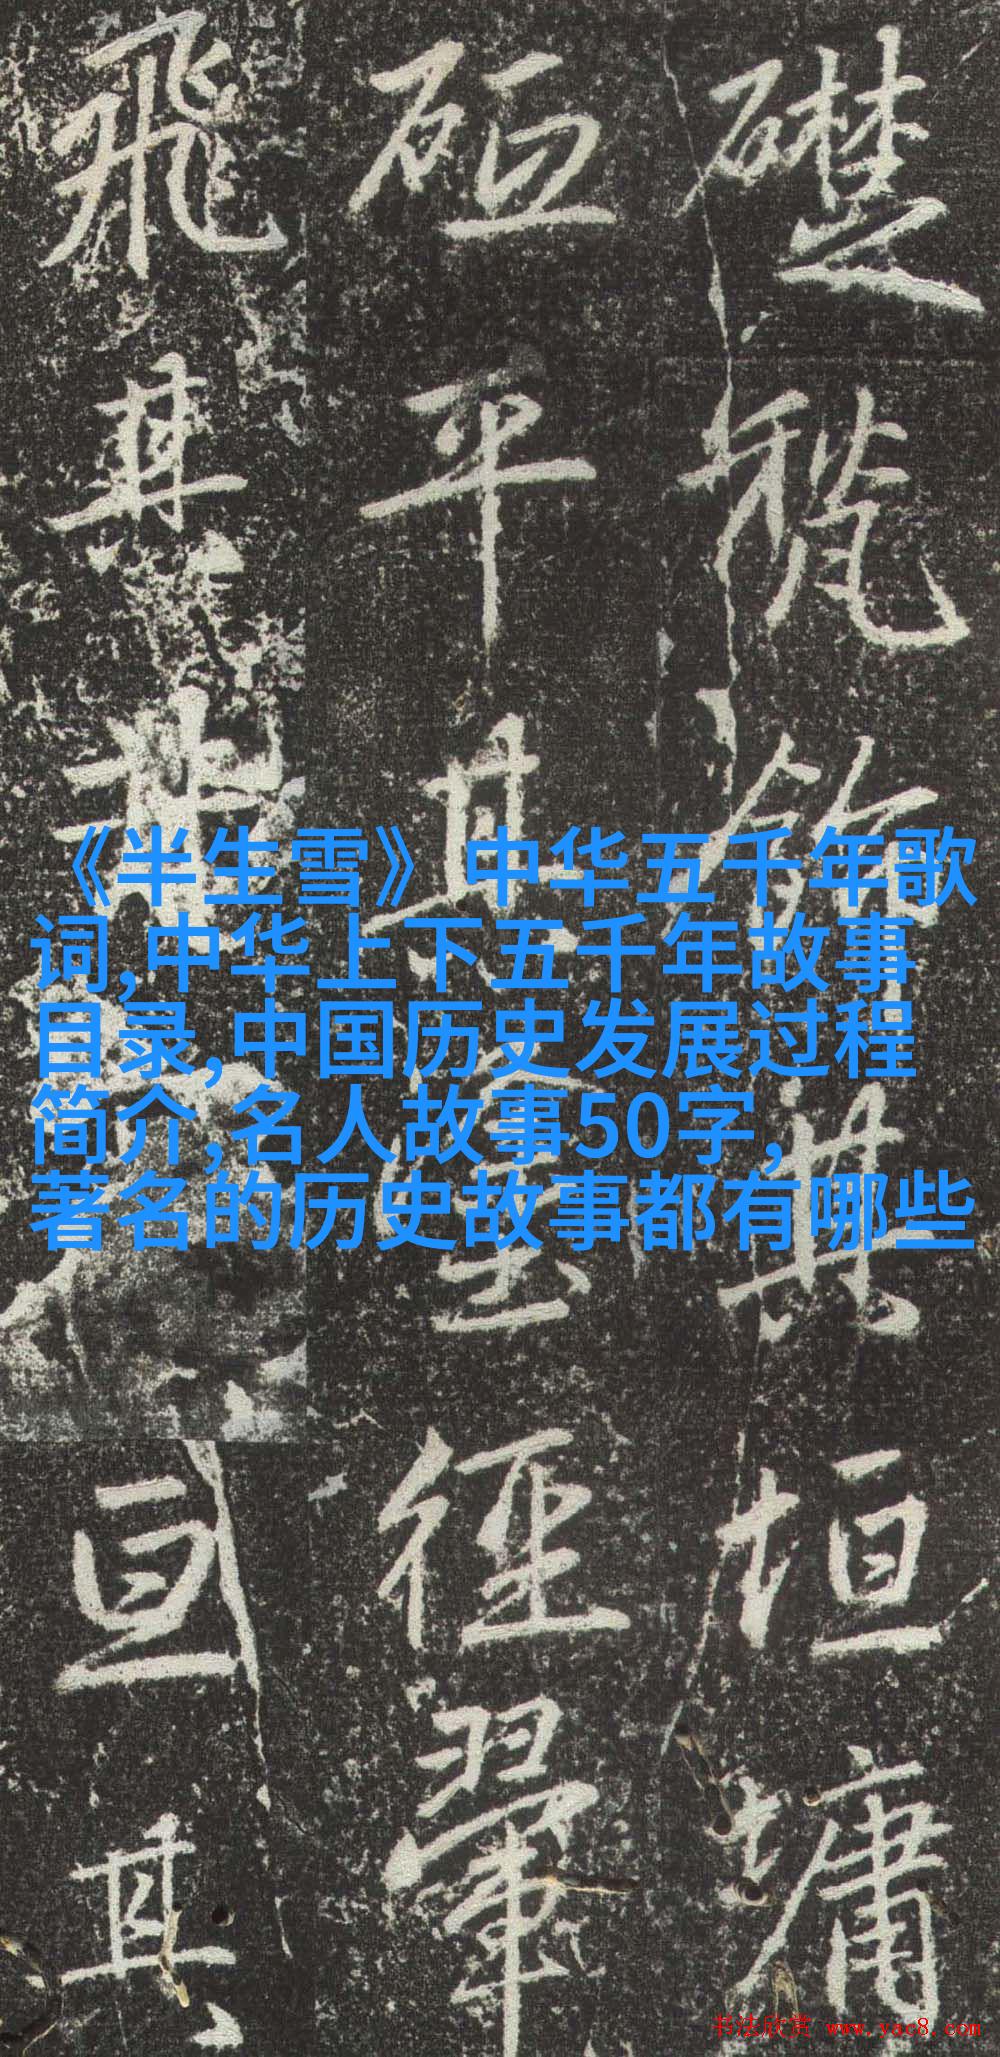 《半生雪》中华五千年歌
词,中华上下五千年故事
目录,中国历史发展过程
简介,名人故事50字,
著名的历史故事都有哪些
礎飾其垣墉
平其徑翬
飛其亘其
书法欣赏 www.yac8.com